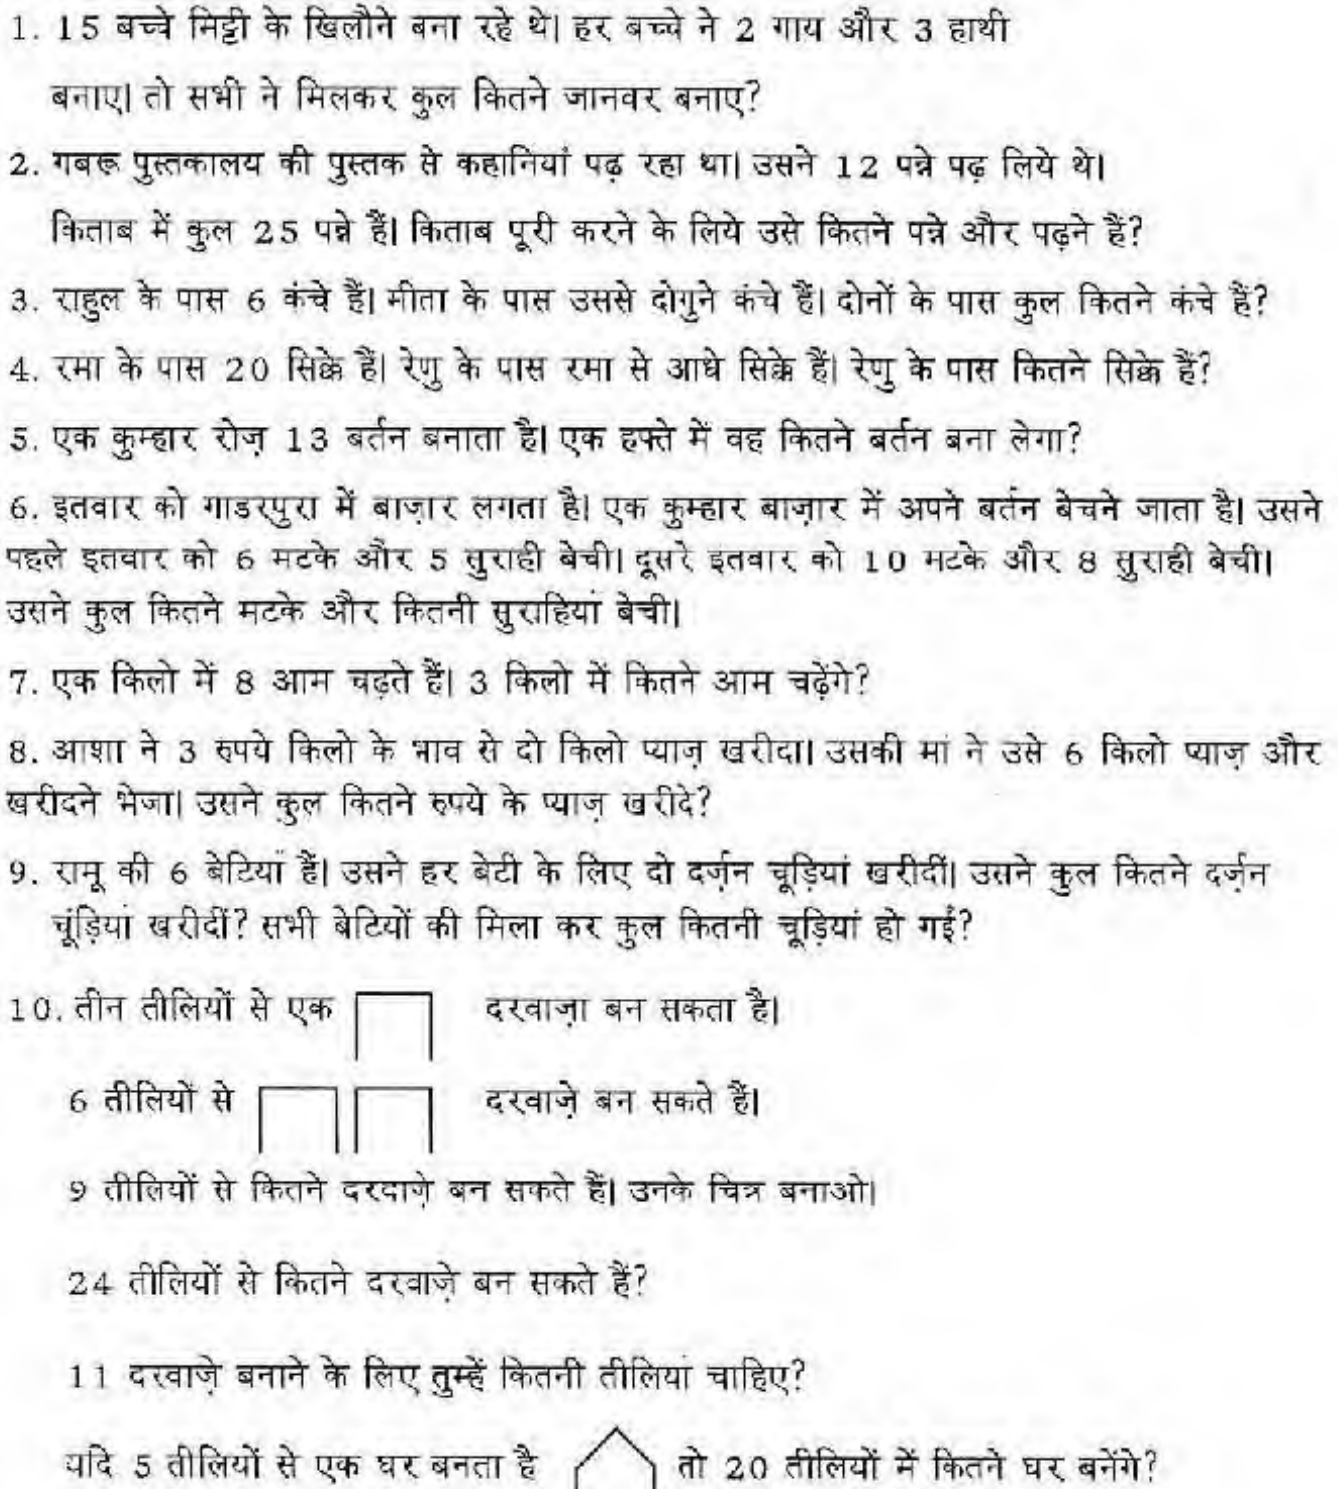 1. 15 बच्चे मिट्टी के खिलौने बना रहे थे| हर बच्चे ने 2 गाय और 3 हाथी
बनाए| तो सभी ने मिलकर कुल कितने जानवर बनाए?
2. गबरू पुस्तकालय की पुस्तक से कहानियां पढ़ रहा था| उसने 12 पन्ने पढ़ लिये थे।
किताब में कुल 25 पन्ने हैं| किताब पूरी करने के लिये उसे कितने पन्ने और पढ़ने हैं?
3. राहुल के पास 6 कंचे हैं| मीता के पास उससे दोगुने कंचे हैं| दोनों के पास कुल कितने कंचे हैं?
4. रमा के पास 20 सिक्के हैं| रेणु के पास रमा से आधे सिक्के हैं| रेणु के पास कितने सिक्के हैं?
5. एक कुम्हार रोज़ 13 बर्तन बनाता है| एक हफ्ते में वह कितने बर्तन बना लेगा?
6. इतवार को गाडरपुरा में बाज़ार लगता है| एक कुम्हार बाज़ार में अपने बर्तन बेचने जाता है| उसने
पहले इतवार को 6 मटके और 5 सुराही बेची| दूसरे इतवार को 10 मटके और 8 सुराही बेची|
उसने कुल कितने मटके और कितनी सुराहियां बेची|
7. एक किलो में 8 आम चढ़ते हैं| 3 किलो में कितने आम चढ़ेंगे?
8. आशा ने 3 रुपये किलो के भाव से दो किलो प्याज़ खरीदा| उसकी मां ने उसे 6 किलो प्याज़ और
खरीदने भेजा| उसने कुल कितने रुपये के प्याज़ खरीदे?
9. रामू की 6 बेटियां हैं| उसने हर बेटी के लिए दो दर्ज़न चूड़ियां खरीदीं| उसने कुल कितने दर्ज़न
चूंड़ियां खरीदीं? सभी बेटियों की मिला कर कुल कितनी चूड़ियां हो गईं?
10. तीन तीलियों से एक दरवाज़ा बन सकता है|
6 तीलियों से दरवाज़े बन सकते हैं|
9 तीलियों से कितने दरवाज़े बन सकते हैं| उनके चित्र बनाओ|
24 तीलियों से कितने दरवाज़े बन सकते हैं?
11 दरवाज़े बनाने के लिए तुम्हें कितनी तीलियां चाहिए?
यदि 5 तीलियों से एक घर बनता है तो 20 तीलियों में कितने घर बनेंगे?